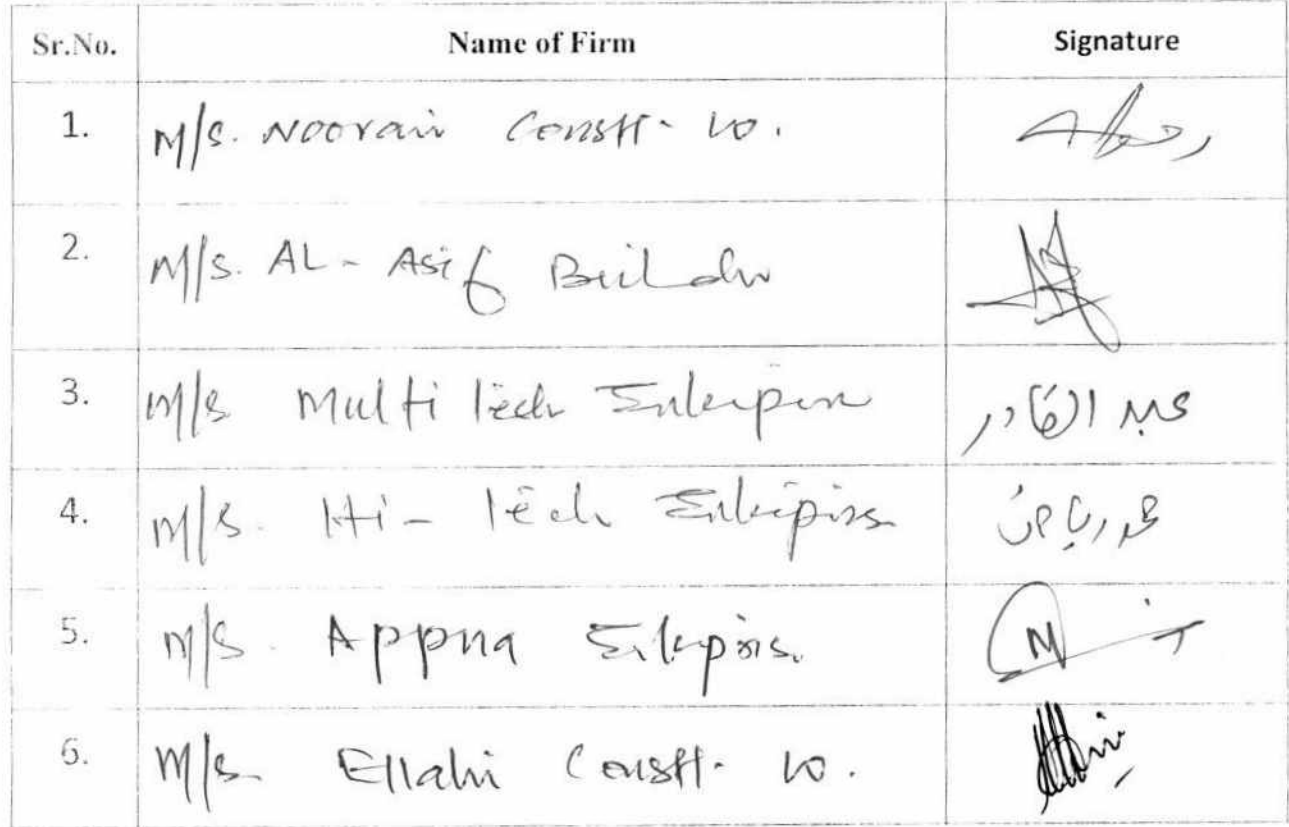 Sr.No. Name of Firm Signature
1. M/s. Noorani Constt. Co.
2. M/s. AL-Asif Builder
3. M/s Multi Tech Enterprises عبد القادر
4. M/s. Hi-Tech Enterprises محمد ریاض
5. M/s. Appna Enterprises
6. M/s Ellahi Constt. Co.